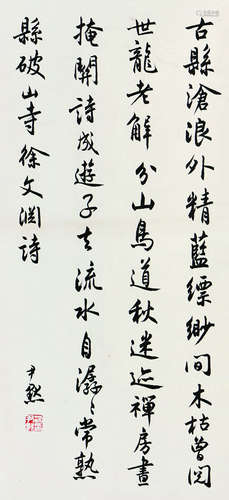 古縣滄浪外精藍縹緲间木枯曾閱
世龍老解分山鳥道秋迷迹禪房晝
掩關詩成遊子去流水自潺〻常熟
縣破山寺徐文淵詩
尹默